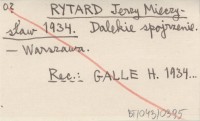 OZ RYTARD Jerzy Mieczy-
sław 1934. Dalekie spojrzenie.
— Warszawa.
Rec.: GALLE H. 1934...